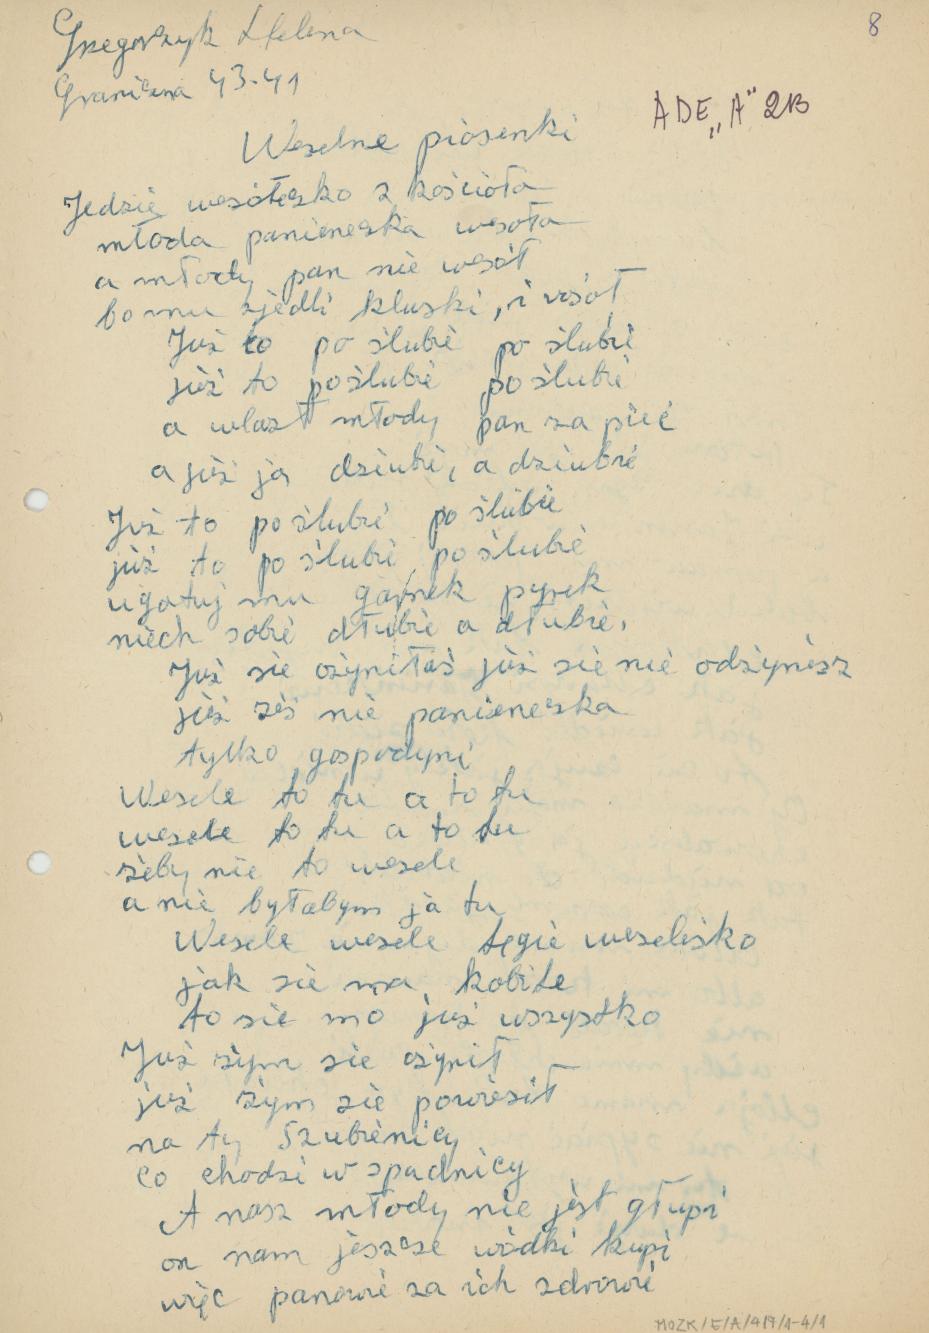 Grzegorzyk Helena
8
Graniczna 43-41
ADE „A" 2B
Weselne piosenki
Jedzie wesółeszko z kościoła
młoda panieneszka wesoła
a młody pan nie wesół
bo mu zjedli kluski, i rosół
Już to po ślubie po ślubie
już to poślubie po ślubie
a wlazł młody pan za piec
a już ją dziubie, a dziubie
Już to poślubie po ślubie
już to po ślubie po ślubie
ugotuj mu garnek pyrek
niech sobie dłubie a dłubie.
Już sie ożyniłaś już sie nie odżynisz
jużześ nie panieneszka
tylko gospodyni
Wesele to tu a to tu
wesele to tu a to tu
żeby nie to wesele
a nie byłabym ja tu
Wesele wesele tęgie weselisko
jak sie ma kobite
to sie mo już wszystko
Już żym sie ożynił
już żym sie powiesił
na ty szubienicy
co chodzi w spadnicy
A nasz młody nie jest głupi
on nam jeszcze wódki kupi
więc panowie za ich zdrowie
MOZK/E/A/419/1-4/1